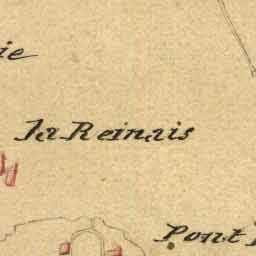 ie
la Reinais
Pont